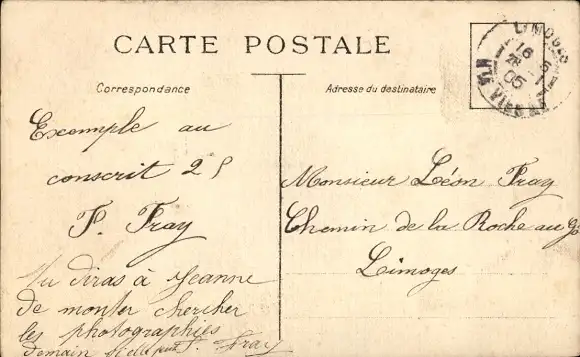 CARTE POSTALE
LIMOGES
16
5
05
Correspondance
Adresse du destinataire
Exemple au
conscrit 2 S
P. Fray
Tu diras à Jeanne
de monter chercher
les photographies
demain si elle peut P. Fray
Monsieur Léon Fray
Chemin de la Roche au
Limoges